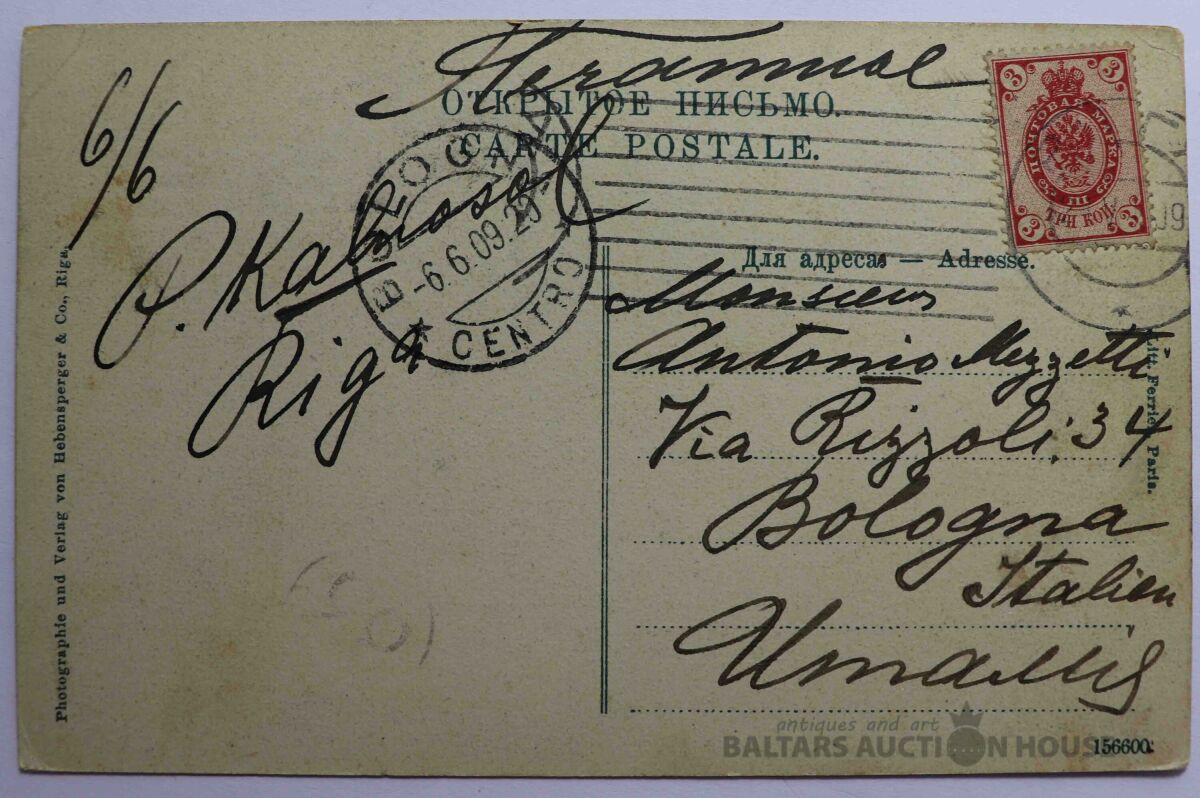 6/6
ОТКРЫТОЕ ПИСЬМО.
CARTE POSTALE.
3 3
ПОЧТОВАЯ МАРКА
ТРИ КОП.
3 3
BOLOGNA
-6.6.09.
CENTRO
Для адреса. — Adresse.
P.
Riga
Monsieur
Antonio Mezzetti
Via Rizzoli. 34
Bologna
Italien
Италия
Photographie und Verlag von Hebensperger & Co., Riga.
Paris.
156600
antiques and art
BALTARS AUCTION HOUSE